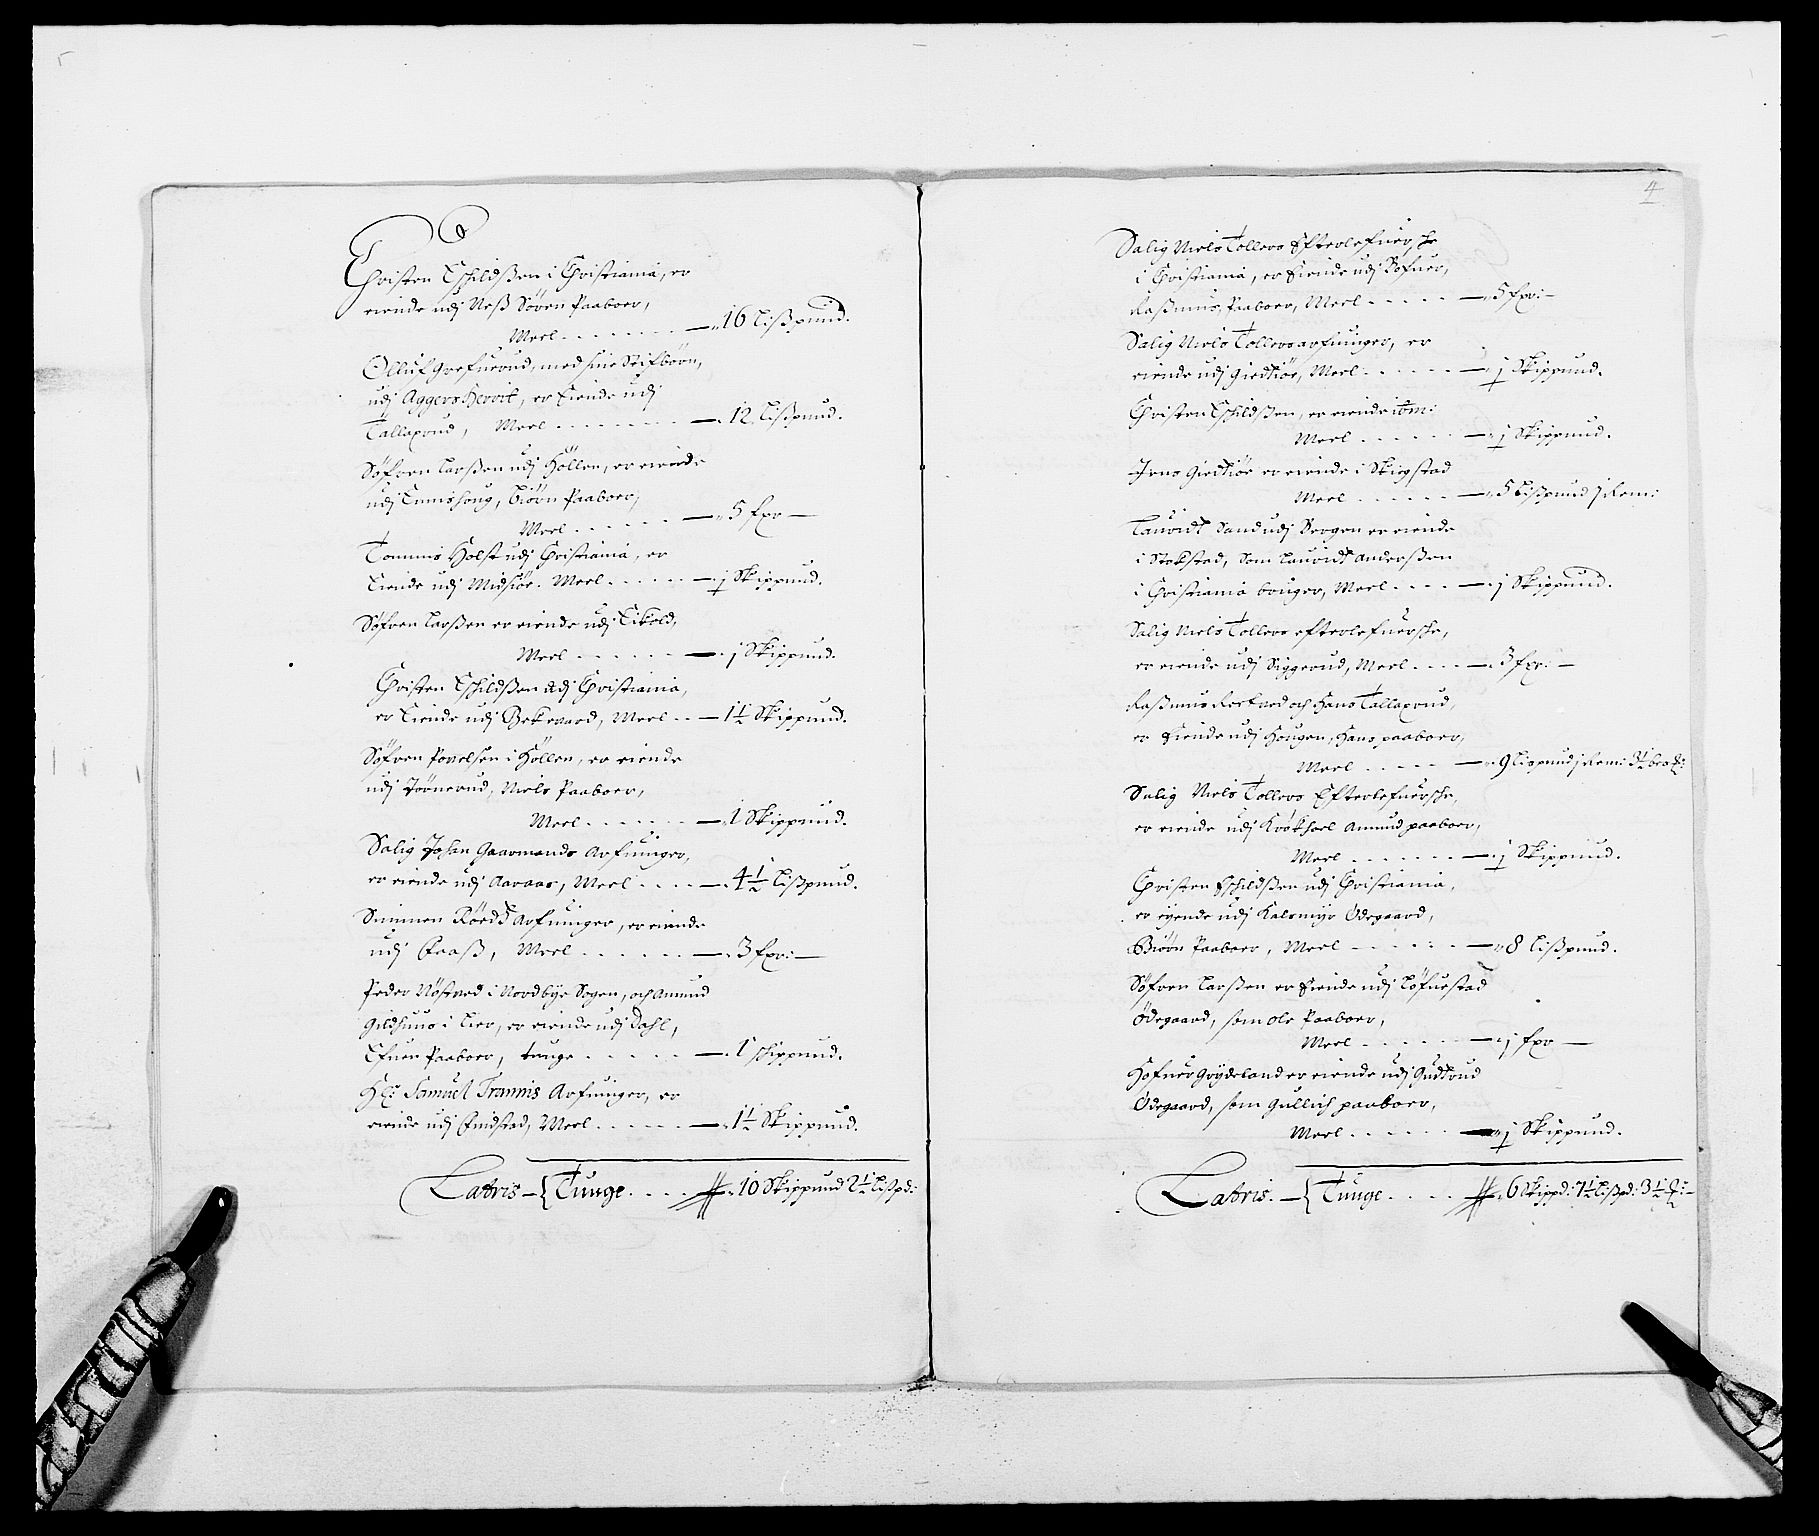 Christen Eschildßen i Christiania, er
eiende udj Neß Sören Paaboer,
Meel - - - - - - - 16 Lißpund.
Olluf Grefuerud, med sine Stifbörn,
udj Aggers Herrit, er Eiende udj
Tallaxrud, Meel - - - - - - - 12 Lißpund.
Söfren Larßen udj Höllen, er eiende
udj Biörn Paaboer,
Meel - - - - - - 5 fxr -
Tommis Holst udj Christiania, er
Eiende udj Midsiöe. Meel - - - - - j Skippund.
Söfren Larßen er eiende udj Eikeld,
Meel - - - - - - j Skippund.
Christen Eschildßen udj Christiania,
er Eiende udj Bekevard, Meel - - 1½ Skippund.
Söfren Povelsen i Höllen, er eiende
udj Törnerud, Niels Paaboer,
Meel - - - - - - 1 Skippund.
Salig Johan Gaarmands Arfuinger,
er eiende udj Aaraas, Meel - - - - 4½ Lißpund.
Simmen Röeds Arfuinger, er eiende
udj Faaß, Meel - - - - - - 3 fxr: -
Peder Nöstved i Nordbye Sogen, och Amund
Gildhuus i Lier, er eiende udj Dahl,
Efuen Paaboer, tunge - - - - - 1 schippund.
Hr: Samuel Trannis Arfuinger, er
eiende udj Findstad, Meel - - - - - 1½ Skippund.
Latris - { Tunge - - - - 10 Skippund 2½ Lißpd:
4
Salig Niels Tollers Efterlefuersche
i Christiania, er Eiende udj Rofuer,
Raßmus Paaboer, Meel - - - - 5 fxr: -
Salig Niels Tollers arfuinger, er
eiende udj Giedsiöe, Meel - - - - - j Skippund.
Christen Eschildßen, er eiende ibm:
Meel - - - - - - j Skippund.
Jens Giedsiöe er eiende i Skiegstad
Meel - - - - - - 5 Lißpund j Rem:
Lauridt Sand udj Bergen er eiende
i Stokstad, som Lauridt Anderßen
i Christiania bruger, Meel - - - - j Skippund.
Salig Niels Tollers efterlefuersche,
er eiende udj Siggerud, Meel - - - - 3 fxr: -
Raßmus och Hans Tallaxrud,
er Eiende udj Hougen, Hans paaboer,
Meel - - - - - 9 Lispund j Rem:
Salig Niels Tollers Efterlefuersche,
er eiende udj Krökhoel Amund paaboer,
Meel - - - - - - j Skippund.
Christen Eschildßen udj Christiania,
er eyende udj Kalsmyr Ödegaard,
Biörn Paaboer, Meel - - - - - 8 Lißpund.
Söfren Larßen er Eiende udj Löfuestad
Ödegaard, som Ole Paaboer,
Meel - - - - - - j fxr -
Hofuer Grydeland er eiende udj Gudtrud
Ödegaard, som Gullich paaboer,
Meel - - - - - - j Skippund.
Latris. - { Tunge - - - - 6 Skippd: 7½ Lißpd: 3½